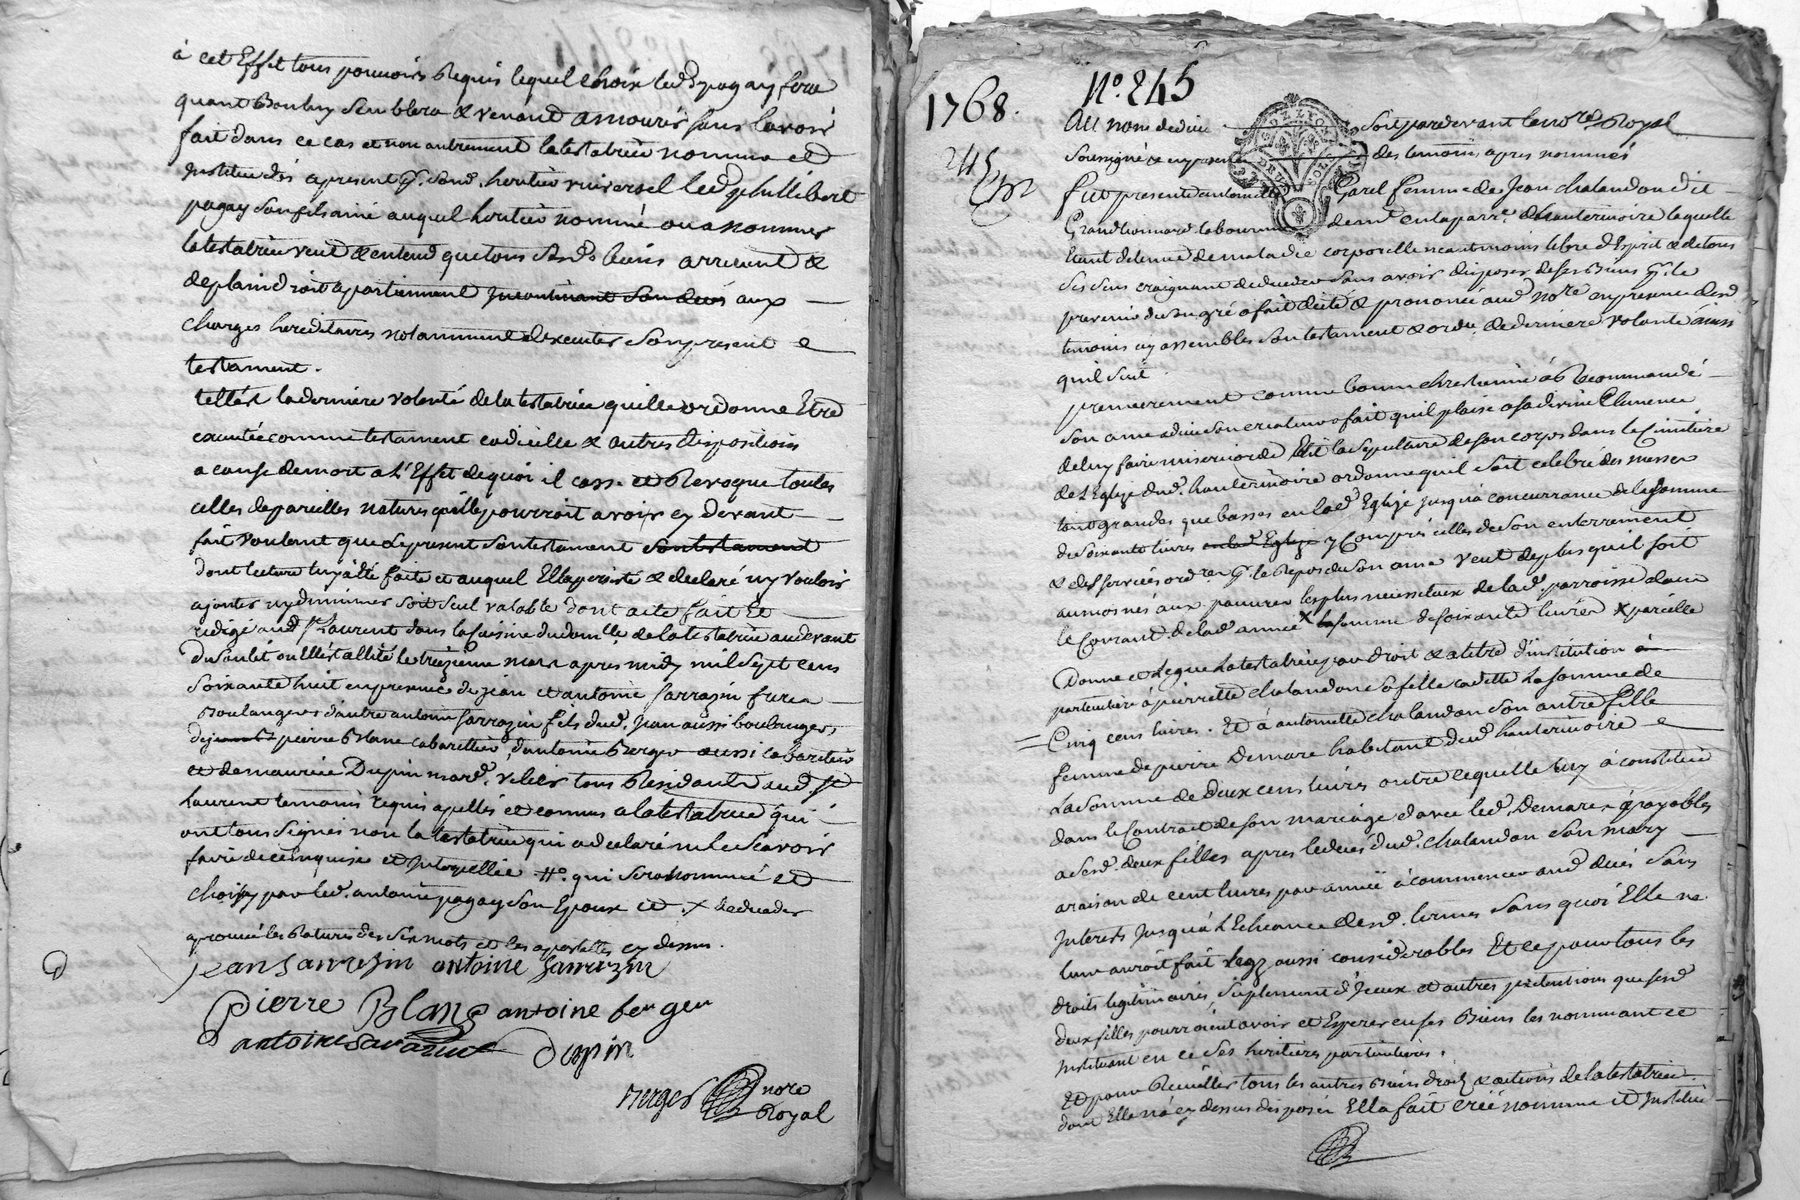 à cet Effet tous pouvoirs Requis lequel choix led. pagay fera
quant Bon luy semblera & venant a mourir sans lavoir
fait dans ce cas et non autrement la testatrice nomme et
Institue dès apresent pr. son heritier universel led. phillibert
pagay son fils ainé auquel heritier nommé ou a nommer
la testatrice veut & entend que tous sesd. biens arrivent &
de plain droit apartiennent Incontinant son decès aux
charges hereditaires notamment dexecuter son present
testament.
telle est la derniere volonté de la testatrice quelle ordonne Etre
executée comme testament codicille & autres dispositions
a cause de mort a l'Effet de quoi il casse et Revoque toutes
celles de pareilles natures quelle pourroit avoir cy devant
fait voulant que le present son testament son testament
dont lecture luy a été faite et auquel Ella persisté & declaré ny vouloir
ajouter ny diminuer soit seul valable dont acte fait et
redigé aud. St. Laurent dans la cuisine du domlle. de la testatrice au devant
du lit ou Elle est allitée le treizieme mars apres midy mil sept cens
soixante huit en presence de jean et antoine sarrazin freres
Boulangers d'autre antoine sarrazin fils dud. jean aussi boulanger,
pierre Blanc cabarettier, d'antoine Berger aussi cabaretier
et de maurice Dupin mard. tous Residants aud. St.
Laurent temoins requis apellés et connus a la testatrice qui
ont tous signés non la testatrice qui a declaré ne le scavoir
faire de ce enquise et Interpellée # qui sera nommé et
choisy par led. antoine pagay son Epoux et
aprouvé les Ratures des six mots et les apostilles cy dessus.
jean sarrazin antoine sarrazin
pierre Blanc antoine berger
antoine sarazin Dupin
verger nore
Royal
1768. N°. 245
245
Au nom de dieu soit pardevant le nore. Royal
soussigné & en presence des temoins apres nommés
fut presente antoinette Garel femme de Jean chalandon dit
Grandleonnard laboureur demt. en la parre. d'hauterivoire laquelle
Etant detenue de maladie corporelle neantmoins libre d'Esprit & de tous
ses sens craignant de deceder sans avoir disposer de ses Biens pr. le
prevenir de son gré a fait dicté & prononcé aud. nore. en presence desd.
temoins cy assemblés son testament & ordce. de derniere volonté ainsi
quil suit.
premierement comme bonne chrestienne à Recommandé
son ame a dieu son createur a fait quil plaise a sa divine Clemence
de luy faire misericorde Elit la sepulture de son corps dans le Cimitière
de l'Eglize dud. hauterivoire ordonne quil soit celebré des messes
tant grandes que basses en lad. Eglize jusqu'à concurrance de la somme
de soixante livres en lad. Eglize y compris celles de son enterrement
& des services ordres. pr. le Repos de son ame veut deplus quil soit
aumosnés aux pauvres les plus necessiteux de lad. parroisse dans
le Courant de lad. année la somme de soixante livres & pareille
Donne et Legue la testatrice par droit & a titre d'institution
particuliere à pierrette chalandon sa fille cadette la somme de
Cinq cens livres. Et à antoinette chalandon son autre fille
femme de pierre Demare habitant dud. hauterivoire
la somme de deux cens livres outre ce quelle luy à constitué
dans le Contrat de son mariage d'avec led. Demare payables
a sesd. deux filles apres le deces dud. chalandon son mary
a raison de cent livres par année à commencer aud. deces sans
Interets jusqu'à l'Echeance desd. termes sans quoi Elle ne
leur auroit fait legz aussi considerables Et ce pour tous les
droits legitimaires, suplement d'Iceux et autres pretentions que sesd.
deux filles pourroient avoir et Esperer en ses Biens les nommant et
Instituant en ce ses heritieres particulieres.
Et pour Recueillir tous les autres Biens droits & actions de la testatrice
dont Elle n'a cy dessus disposée Ella fait créé nommé et Institué